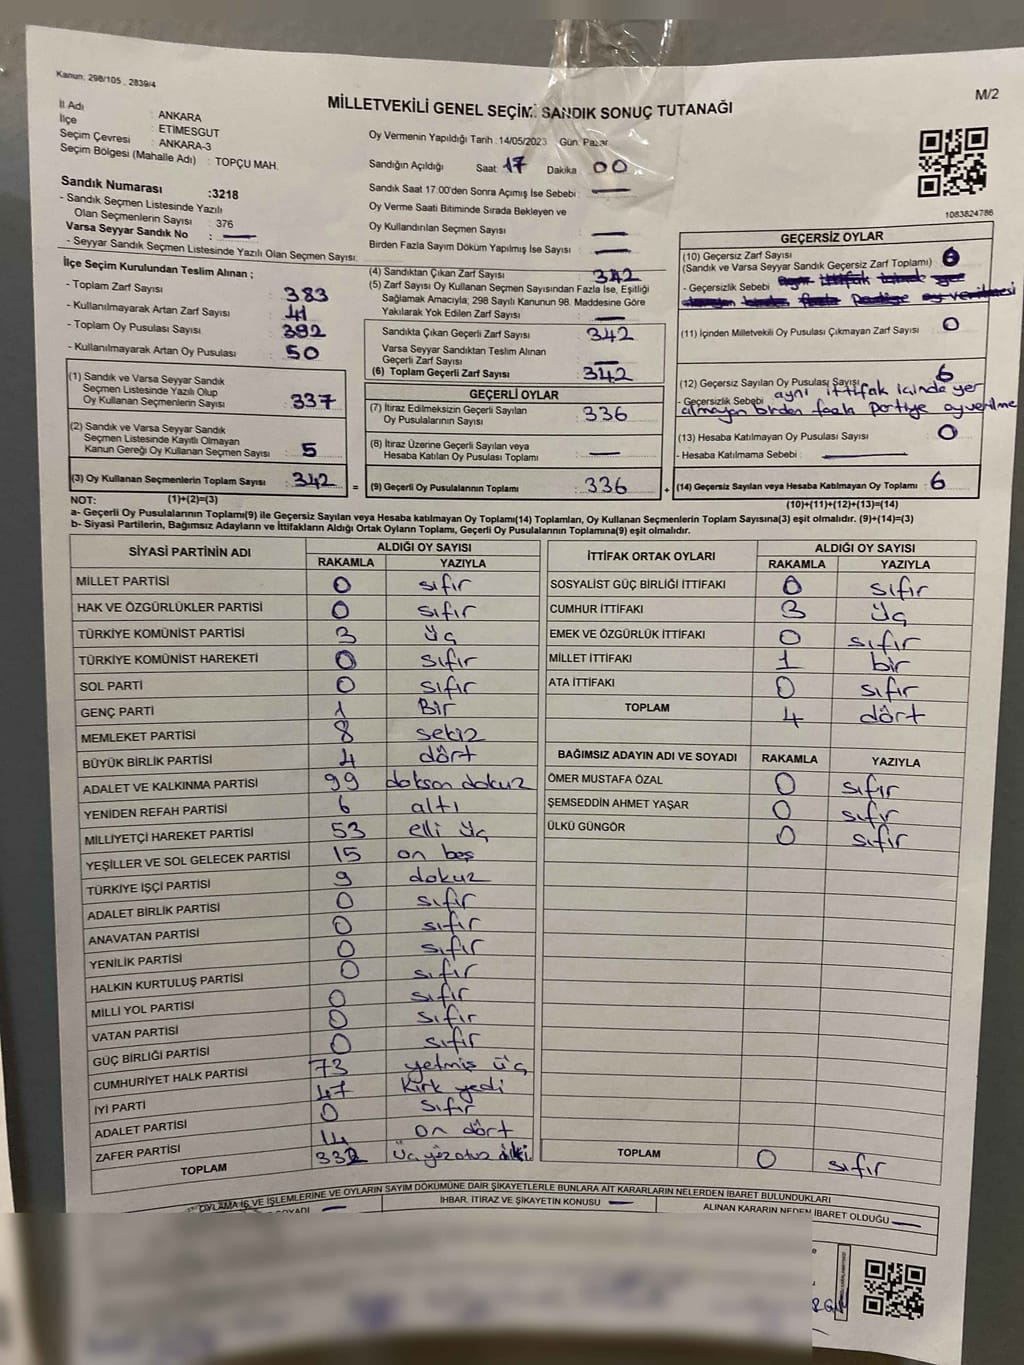 Kanun: 298/105 , 2839/4
M/2
MİLLETVEKİLİ GENEL SEÇİMİ SANDIK SONUÇ TUTANAĞI
İl Adı : ANKARA
İlçe : ETİMESGUT
Seçim Çevresi : ANKARA-3
Seçim Bölgesi (Mahalle Adı) : TOPÇU MAH.
Oy Vermenin Yapıldığı Tarih : 14/05/2023 Gün: Pazar
Sandığın Açıldığı Saat : 17 Dakika : 00
Sandık Saat 17:00'den Sonra Açımış İse Sebebi : —
Oy Verme Saati Bitiminde Sırada Bekleyen ve
Oy Kullandırılan Seçmen Sayısı : —
Birden Fazla Sayım Döküm Yapılmış İse Sayısı : —
1083824786
Sandık Numarası :3218
- Sandık Seçmen Listesinde Yazılı
Olan Seçmenlerin Sayısı : 376
Varsa Seyyar Sandık No : —
- Seyyar Sandık Seçmen Listesinde Yazılı Olan Seçmen Sayısı:
İlçe Seçim Kurulundan Teslim Alınan ;
- Toplam Zarf Sayısı : 383
- Kullanılmayarak Artan Zarf Sayısı : 41
- Toplam Oy Pusulası Sayısı : 392
- Kullanılmayarak Artan Oy Pusulası : 50
(1) Sandık ve Varsa Seyyar Sandık
Seçmen Listesinde Yazılı Olup
Oy Kullanan Seçmenlerin Sayısı : 337
(2) Sandık ve Varsa Seyyar Sandık
Seçmen Listesinde Kayıtlı Olmayan
Kanun Gereği Oy Kullanan Seçmen Sayısı : 5
(3) Oy Kullanan Seçmenlerin Toplam Sayısı : 342 =
(4) Sandıktan Çıkan Zarf Sayısı : 342
(5) Zarf Sayısı Oy Kullanan Seçmen Sayısından Fazla İse, Eşitliği
Sağlamak Amacıyla; 298 Sayılı Kanunun 98. Maddesine Göre
Yakılarak Yok Edilen Zarf Sayısı : —
Sandıkta Çıkan Geçerli Zarf Sayısı : 342
Varsa Seyyar Sandıktan Teslim Alınan
Geçerli Zarf Sayısı : —
(6) Toplam Geçerli Zarf Sayısı : 342
GEÇERLİ OYLAR
(7) İtiraz Edilmeksizin Geçerli Sayılan
Oy Pusulalarının Sayısı : 336
(8) İtiraz Üzerine Geçerli Sayılan veya
Hesaba Katılan Oy Pusulası Toplamı : —
(9) Geçerli Oy Pusulalarının Toplamı : 336 +
GEÇERSİZ OYLAR
(10) Geçersiz Zarf Sayısı
(Sandık ve Varsa Seyyar Sandık Geçersiz Zarf Toplamı) :
- Geçersizlik Sebebi :
(11) İçinden Milletvekili Oy Pusulası Çıkmayan Zarf Sayısı : 0
(12) Geçersiz Sayılan Oy Pusulası Sayısı : 6
- Geçersizlik Sebebi : aynı ittifak içinde yer
almayan birden fazla partiye oy verilme
(13) Hesaba Katılmayan Oy Pusulası Sayısı : 0
- Hesaba Katılmama Sebebi : —
(14) Geçersiz Sayılan veya Hesaba Katılmayan Oy Toplamı : 6
NOT: (1)+(2)=(3)
(10)+(11)+(12)+(13)=(14)
a- Geçerli Oy Pusulalarının Toplamı(9) ile Geçersiz Sayılan veya Hesaba katılmayan Oy Toplamı(14) Toplamları, Oy Kullanan Seçmenlerin Toplam Sayısına(3) eşit olmalıdır. (9)+(14)=(3)
b- Siyasi Partilerin, Bağımsız Adayların ve İttifakların Aldığı Ortak Oyların Toplamı, Geçerli Oy Pusulalarının Toplamına(9) eşit olmalıdır.
SİYASİ PARTİNİN ADI ALDIĞI OY SAYISI
RAKAMLA YAZIYLA
MİLLET PARTİSİ 0 sıfır
HAK VE ÖZGÜRLÜKLER PARTİSİ 0 sıfır
TÜRKİYE KOMÜNİST PARTİSİ 3 üç
TÜRKİYE KOMÜNİST HAREKETİ 0 sıfır
SOL PARTİ 0 sıfır
GENÇ PARTİ 1 Bir
MEMLEKET PARTİSİ 8 sekiz
BÜYÜK BİRLİK PARTİSİ 4 dört
ADALET VE KALKINMA PARTİSİ 99 doksan dokuz
YENİDEN REFAH PARTİSİ 6 altı
MİLLİYETÇİ HAREKET PARTİSİ 53 elli üç
YEŞİLLER VE SOL GELECEK PARTİSİ 15 on beş
TÜRKİYE İŞÇİ PARTİSİ 9 dokuz
ADALET BİRLİK PARTİSİ 0 sıfır
ANAVATAN PARTİSİ 0 sıfır
YENİLİK PARTİSİ 0 sıfır
HALKIN KURTULUŞ PARTİSİ 0 sıfır
MİLLİ YOL PARTİSİ 0 sıfır
VATAN PARTİSİ 0 sıfır
GÜÇ BİRLİĞİ PARTİSİ 0 sıfır
CUMHURİYET HALK PARTİSİ 73 yetmiş üç
İYİ PARTİ 47 Kırk yedi
ADALET PARTİSİ 0 sıfır
ZAFER PARTİSİ 14 on dört
TOPLAM 332 üçyüzotuz iki
İTTİFAK ORTAK OYLARI ALDIĞI OY SAYISI
RAKAMLA YAZIYLA
SOSYALİST GÜÇ BİRLİĞİ İTTİFAKI 0 sıfır
CUMHUR İTTİFAKI 3 üç
EMEK VE ÖZGÜRLÜK İTTİFAKI 0 sıfır
MİLLET İTTİFAKI 1 bir
ATA İTTİFAKI 0 sıfır
TOPLAM 4 dört
BAĞIMSIZ ADAYIN ADI VE SOYADI RAKAMLA YAZIYLA
ÖMER MUSTAFA ÖZAL 0 sıfır
ŞEMSEDDİN AHMET YAŞAR 0 sıfır
ÜLKÜ GÜNGÖR 0 sıfır
TOPLAM 0 sıfır
OYLAMA İŞ VE İŞLEMLERİNE VE OYLARIN SAYIM DÖKÜMÜNE DAİR ŞİKAYETLERLE BUNLARA AİT KARARLARIN NELERDEN İBARET BULUNDUKLARI
SOYADI — İHBAR, İTİRAZ VE ŞİKAYETİN KONUSU — ALINAN KARARIN NEDEN İBARET OLDUĞU —